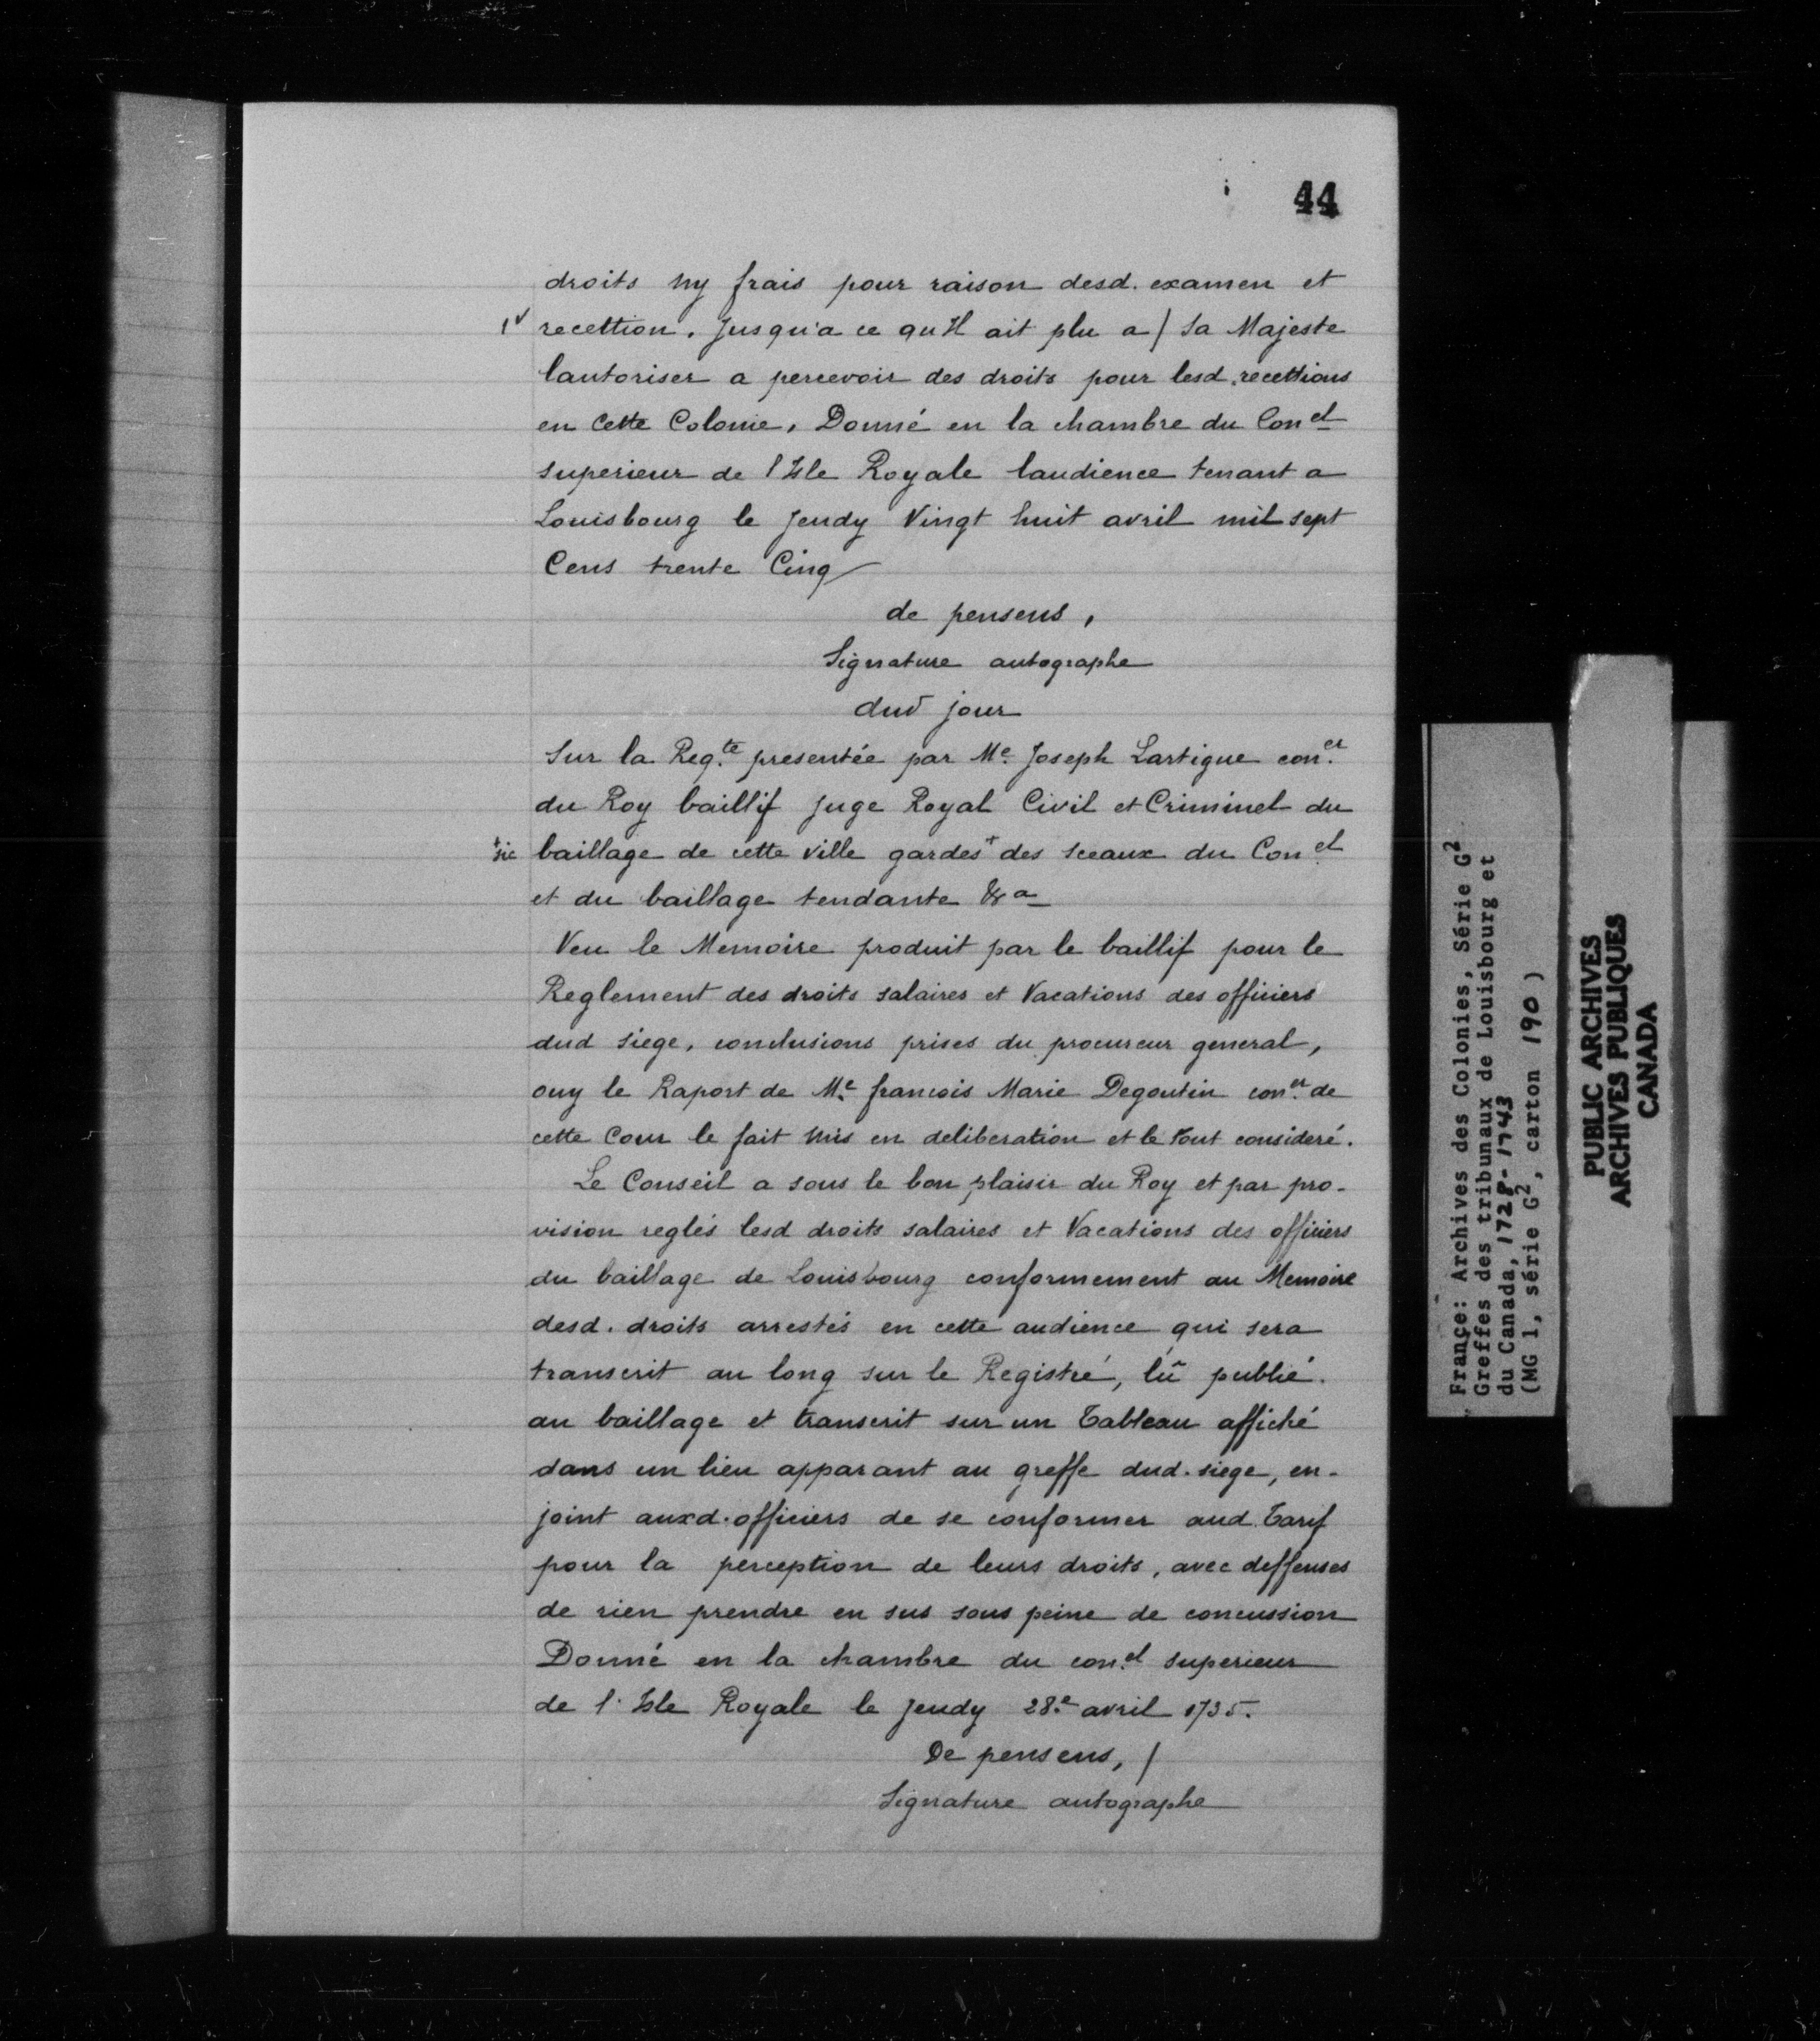 44
droits ny frais pour raison desd. examen et
1v recettion. Jusqu'a ce qu'Il ait plu a / Sa Majeste
lautoriser a percevoir des droits pour lesd. recettions
en Cette Colonie, Donné en la chambre du Con.el
superieur de l'Isle Royale laudience tenant a
Louisbourg le Jeudy Vingt huit avril mil sept
Cens trente Cinq
de pensens,
Signature autographe
dud jour
Sur la Req.te presentée par Me. Joseph Lartigue con.er
du Roy baillif Juge Royal Civil et Criminel du
+sic baillage de cette ville gardes+ des sceaux du Con.el
et du baillage tendante &a
Veu le Memoire produit par le baillif pour le
Reglement des droits salaires et Vacations des officiers
dud siege, conclusions prises du procureur general,
ouy le Raport de Me. francois Marie Degoutin con.er de
cette Cour le fait mis en deliberation et le tout consideré.
Le Conseil a sous le bon plaisir du Roy et par pro-
vision reglés lesd droits salaires et Vacations des officiers
du baillage de Louisbourg conformement au Memoire
desd. droits arrestés en cette audience qui sera
transcrit au long sur le Registré, lû publié.
au baillage et transcrit sur un Tableau affiché
dans un lieu apparant au greffe dud. siege, en-
joint auxd. officiers de se conformer aud. Tarif
pour la perception de leurs droits, avec deffenses
de rien prendre en sus sous peine de concussion
Donné en la chambre du con.el superieur
de l'Isle Royale le Jeudy 28.e avril 1735.
De pensens, /
Signature autographe
France: Archives des Colonies, Série G2
Greffes des tribunaux de Louisbourg et
du Canada, 1728-1743
(MG 1, série G2, carton 190)
PUBLIC ARCHIVES
ARCHIVES PUBLIQUES
CANADA